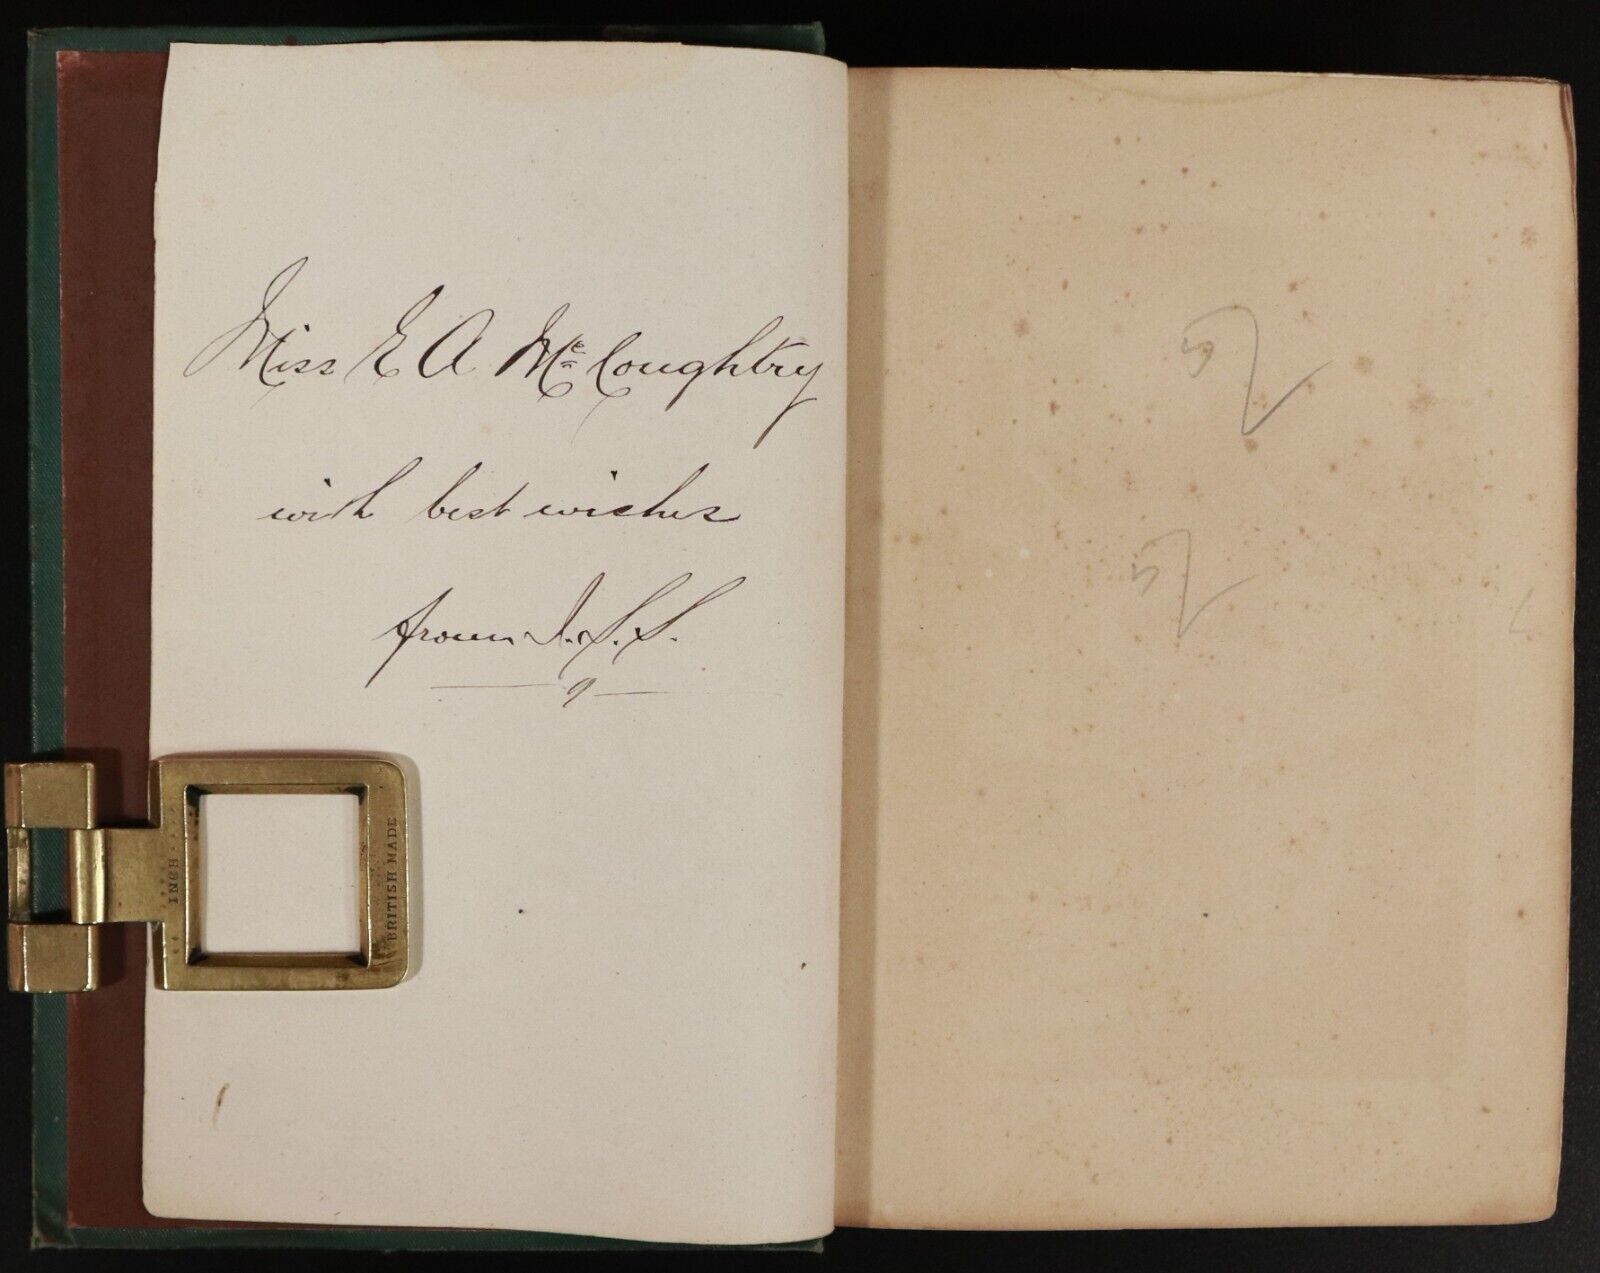 Miss E A McCoughtry
with best wishes
from J. S. S.
INCH
BRITISH MADE